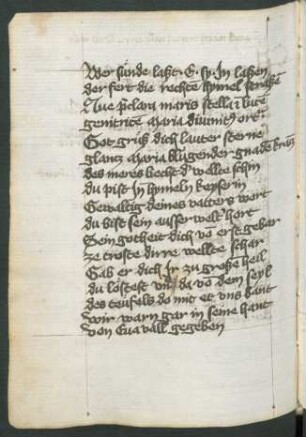 Wer sünde laßt. E. sp. In laßen
der fert die rechte hymel straße
Aue p̄clara maris stella in luce
genitrice Maria diuinit9 ort
Got grüß dich lauter sterne
glantz Maria blügender gnaden krantz
des meres hecht der wellte schin
du pist In hymeln keyserin
Gewaltig deines vatters wort
du bist sein ausser welt hort
Sein gotheit dich vō erst gebar
ze troste dirre wellte schar
Gab er dich Ir zu große heil
du lostest vns da vō dem seyl
des teufels do mit er vns bant
wir warn gar in seine hant
von Eua vall gegeben